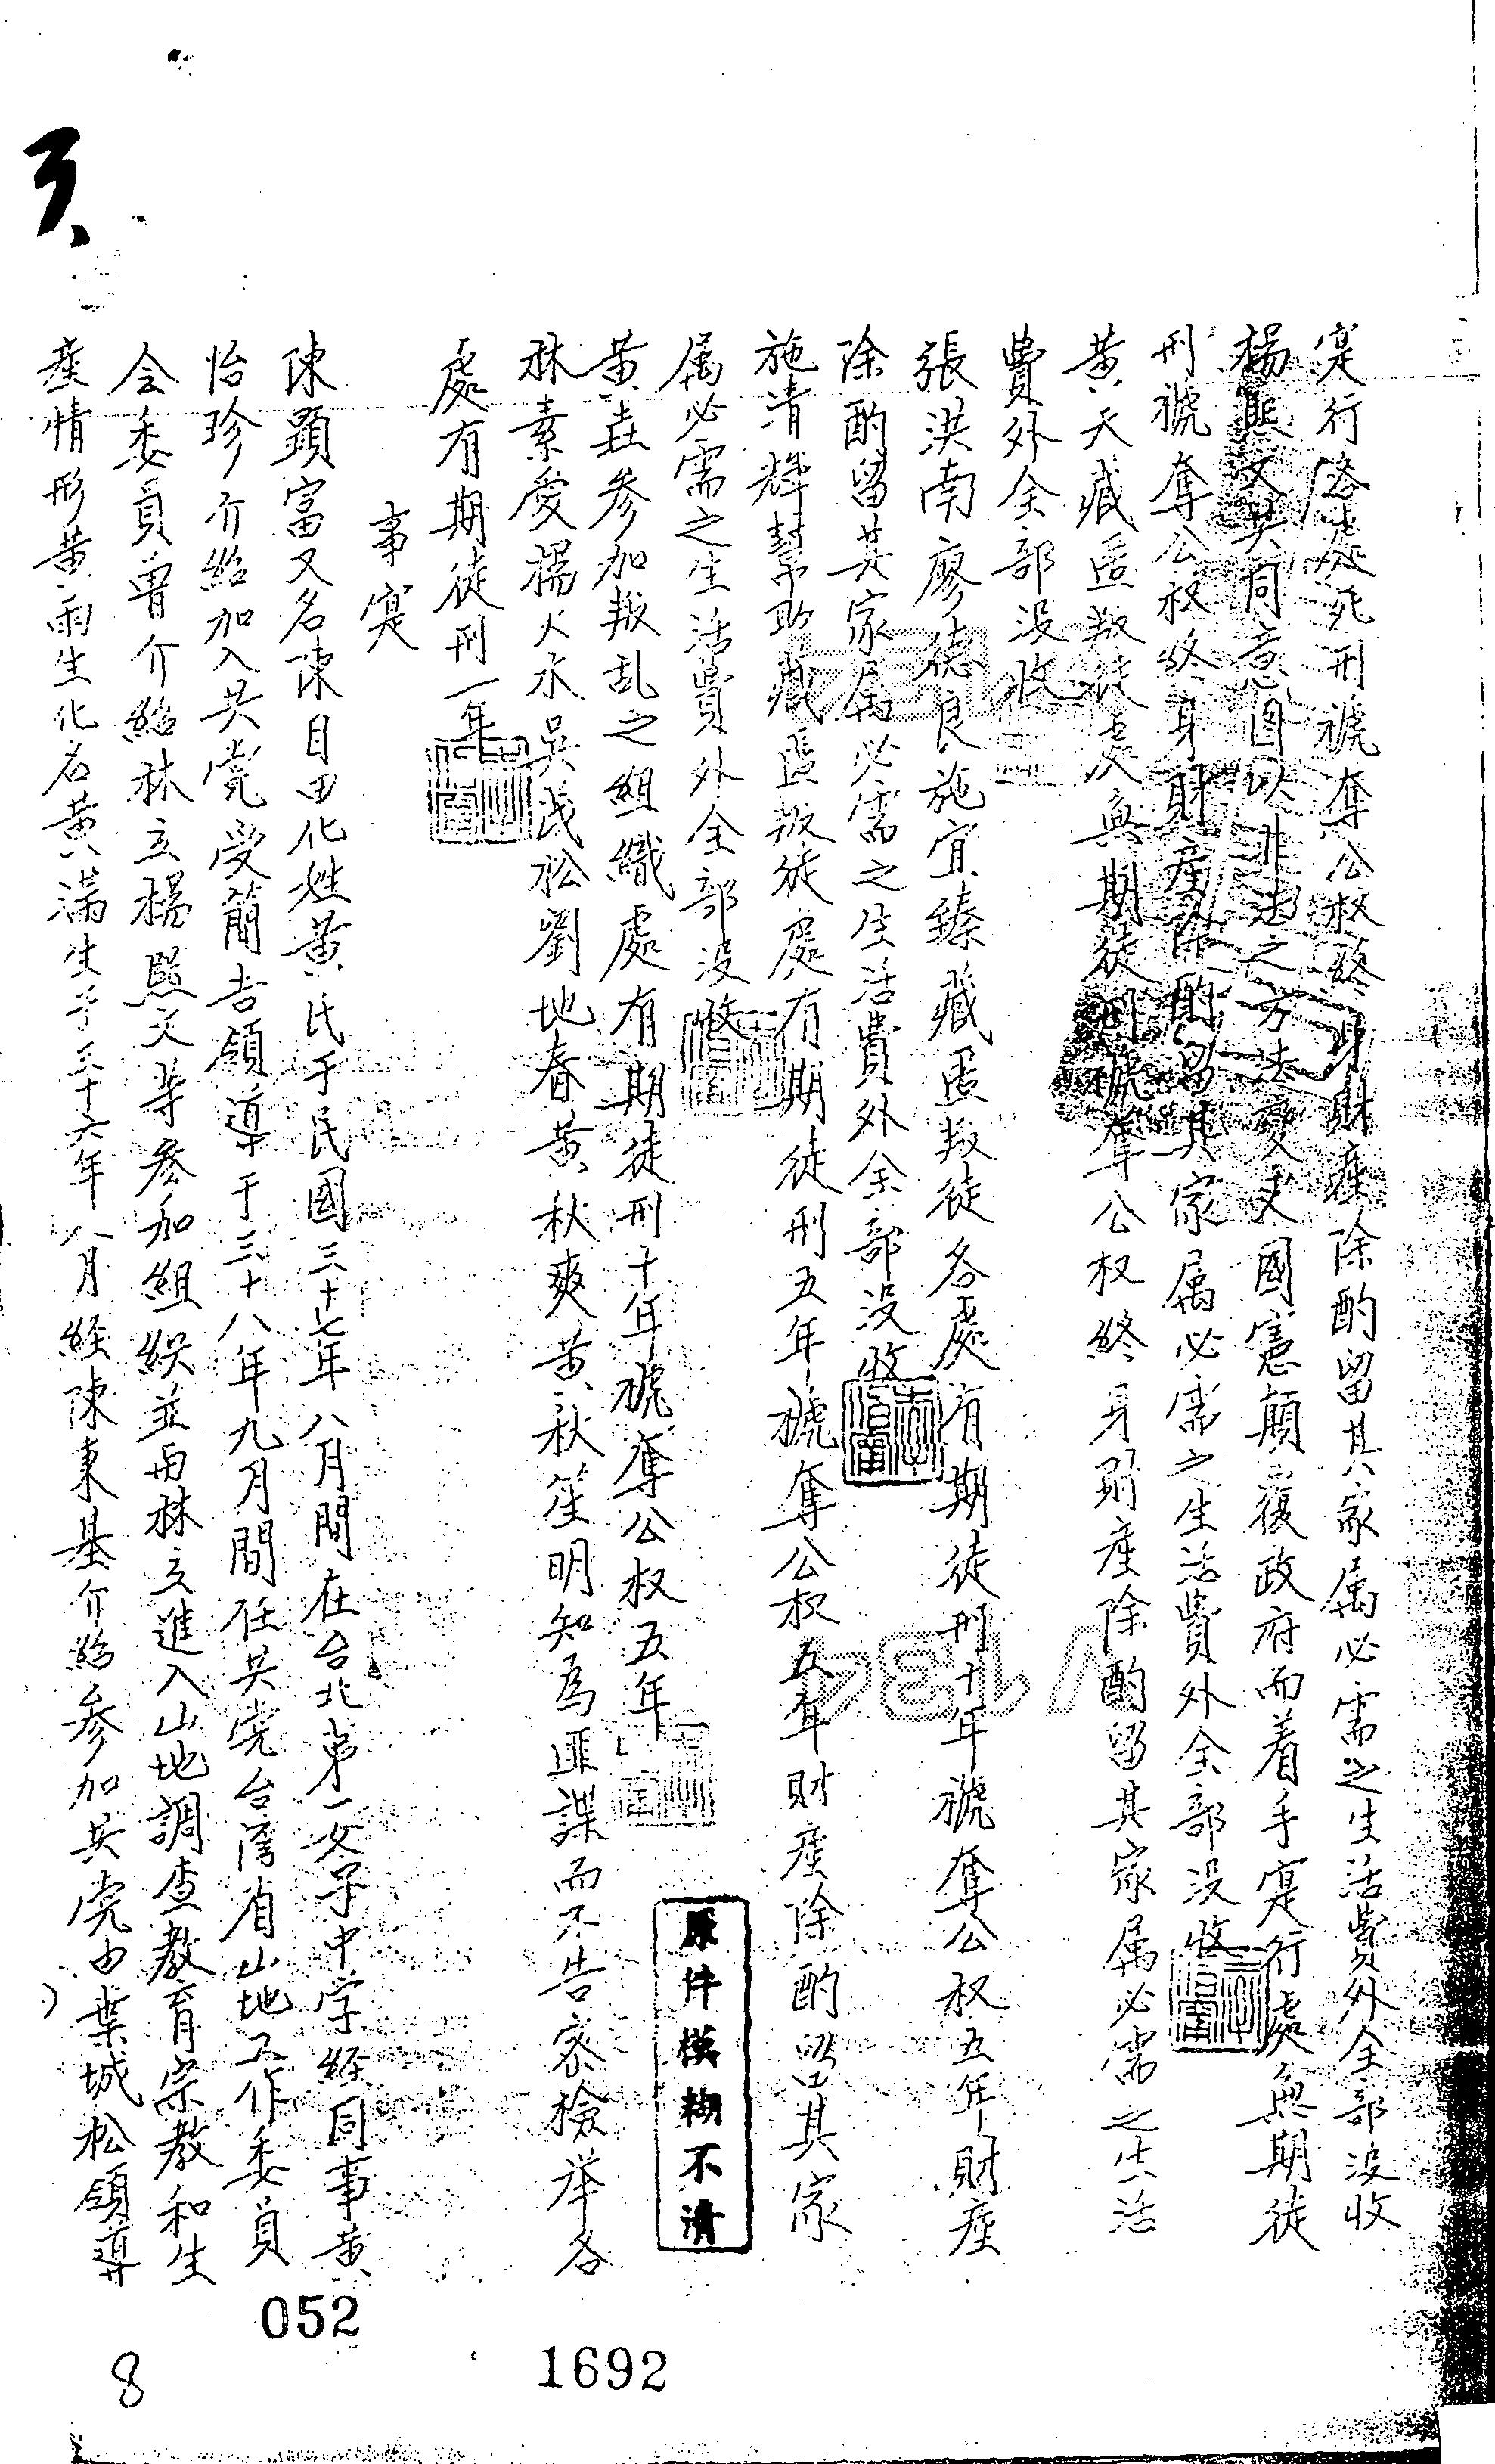 実行各處死刑褫奪公权終身財產除酌留其家属必需之生活費外全部没收
楊熙文共同意图以非法之方法変更國憲顛覆政府而着手実行處無期徒
刑褫奪公权終身財產除酌留其家属必需之生活費外全部没收
黄天藏匿叛徒處無期徒刑褫奪公权終身財產除酌留其家属必需之生活
費外全部没收
張洪南廖德良施宜臻藏匿叛徒各處有期徒刑十年褫奪公权五年財產
除酌留其家属必需之生活費外全部没收
施清輝幫助藏匿叛徒處有期徒刑五年褫奪公权五年財產除酌留其家
属必需之生活費外全部没收
黄垚参加叛乱之組織處有期徒刑十年褫奪公权五年
林素愛楊火水吳茂松劉地春黄秋爽黄秋笙明知為匪諜而不告密檢举各
處有期徒刑一年
事実
陳顕富又名陳目田化姓黄氏于民國三十七年八月間在台北第一女子中学経同事黄
怡珍介紹加入共党受簡吉領導于三十八年九月間任共党台湾省山地工作委員
会委員曽介紹林立楊熙文等参加組织並与林立進入山地調查教育宗教和生
產情形黄雨生化名黄满生于三十六年八月経陳東基介紹参加共党由葉城松領導
原件模糊不清
052
1692
8